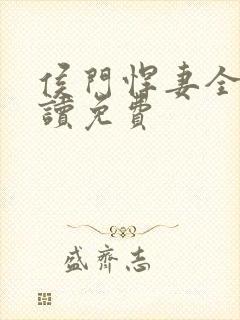 侯門悍妻全
讀免費
盛齊志